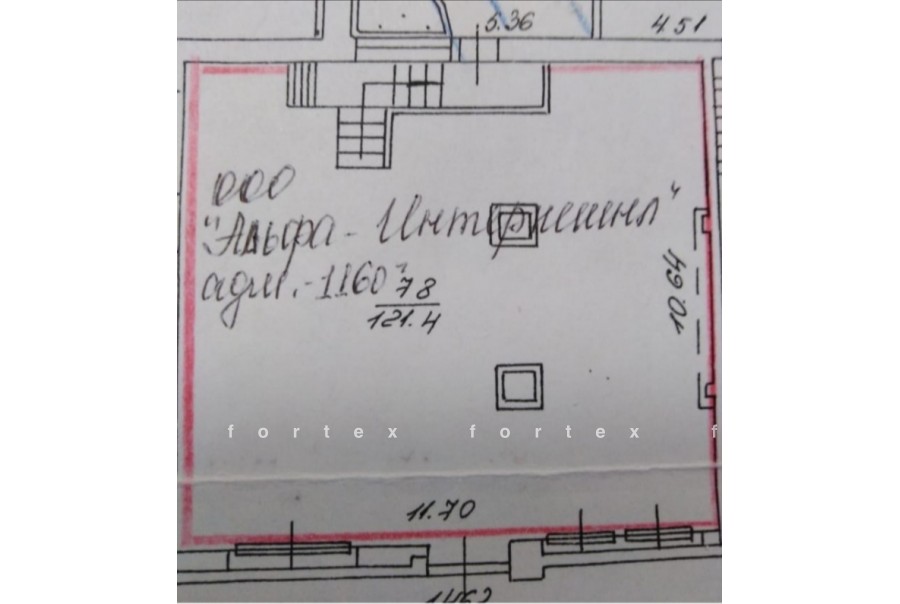 5.36
4.51
ООО
"Альфа - Интернешнл"
адм. - 1160
78
121.4
10.64
fortex fortex f
11.70